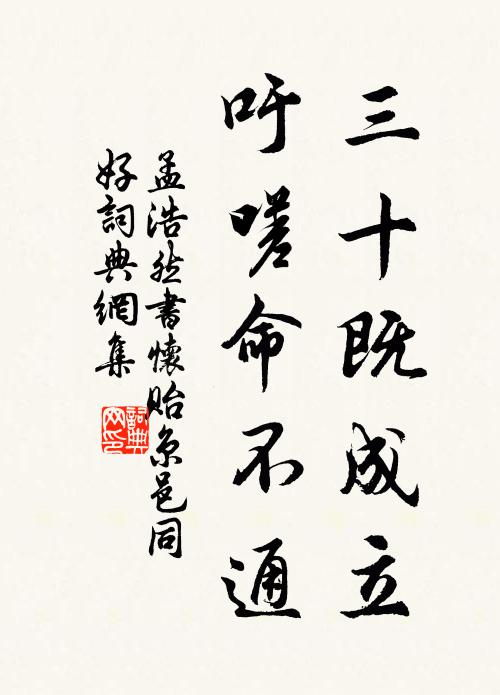 三十既成立
吁嗟命不通
孟浩然書懷貽京邑同
好詞典網集
詞典
网印